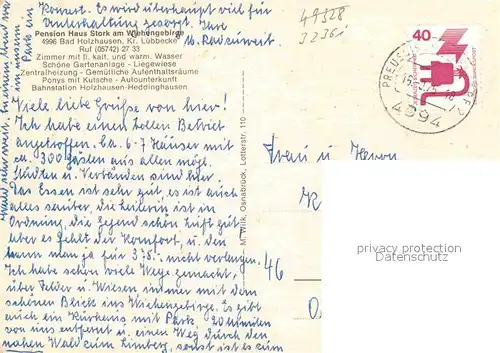 Konzert. Es wird überhaupt viel für
Unterhaltung gesorgt. Ihre
Pension Haus Stork am Wiehengebirge
4996 Bad Holzhausen, Kr. Lübbecke
Ruf (05742) 27 33
Zimmer mit fl. kalt. und warm. Wasser
Schöne Gartenanlage - Liegewiese
Zentralheizung - Gemütliche Aufenthaltsräume
Ponys mit Kutsche - Autounterkunft
Bahnstation Holzhausen-Heddinghausen
Viele liebe Grüße von hier!
Ich habe einen tollen Betrieb
angetroffen. ca. 6-7 Häuser mit
ca. 300 Gästen aus allen mögl.
Städten u. Verbänden sind hier.
Das Essen ist sehr gut, es ist auch
alles sauber, die Leiterin ist in
Ordnung, die Gegend schön, Luft gut,
aber es fehlt der Komfort, u. den
kann man ja für nicht verlangen.
Ich habe schon viele Wege gemacht,
über Felder u. Wiesen immer mit dem
schönen Blick ins Wiehengebirge. Es gibt
auch ein Kurhaus mit Park, 20 Minuten
von uns entfernt u. einen Weg durch den
nahen Wald zum Limberg, sonst ist es zum
M. Wilk, Osnabrück, Lotterstr. 110
49328
40
PREUSS
4994
Frau u. Herrn
K
46
privacy protection
Datenschutz